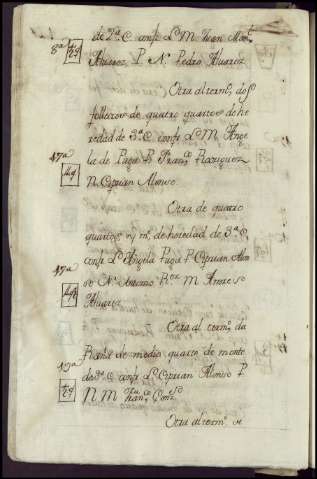 de 2ª C. confr. L. M. Juan
8ª
Alvarez P. N. Pedro Alvarez
Otra al term.º, dos
folleiros de quatro quartos de he
redad de 3ª C. confr. L. M. Ange
17ª
la de Puga P. Fran.co Rodriguez
N. Ciprian Alonso.
Otra de quatro
quartos y m.º de heredad de 3ª C.
confr. L. Angela Puga P. Ciprian Alon
17ª
so N. Antonio M. Andres
Alvarez
Otra al term.º da
de medio quarto de monte
15ª
de 3ª C. confr. L. Ciprian Alonso P.
N. M. Fran.co
Otra al term.º